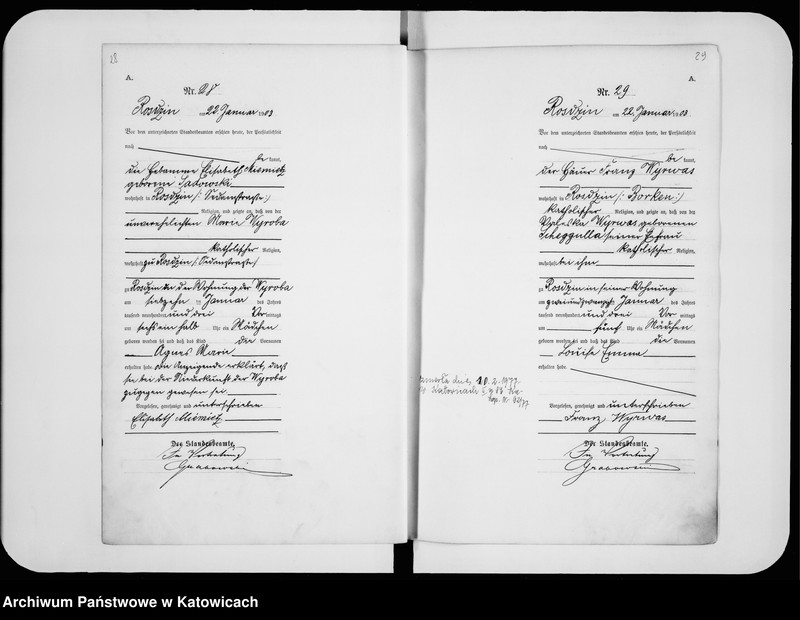 28
A.
Nr. 28
Rosdzin am 22. Januar 1903
Vor dem unterzeichneten Standesbeamten erschien heute, der Persönlichkeit
nach
be kannt,
die Hebamme Elisabeth
geborene Sadowski
wohnhaft in Rosdzin
Religion, und zeigte an, daß von der
unverehelichten Marie Wyroba
katholischer Religion,
wohnhaft zu Rosdzin
zu Rosdzin in der Wohnung der Wyroba
am siebzehn ten Januar des Jahres
tausend neunhundert und drei Vor mittags
um sechs ein halb Uhr ein Mädchen
geboren worden sei und daß das Kind die Vornamen
Agnes Marie
erhalten habe. Die Anzeigende erklärt, daß
sie bei der Niederkunft der Wyroba
zugegen gewesen sei
Vorgelesen, genehmigt und unterschrieben
Elisabeth
Der Standesbeamte.
In Vertretung
29
A.
Nr. 29
Rosdzin am 22. Januar 1903
Vor dem unterzeichneten Standesbeamten erschien heute, der Persönlichkeit
nach
be kannt,
der Häuer Franz Wyrwas
wohnhaft in Rosdzin /: Borken :/
katholischer Religion, und zeigte an, daß von der
Wyrwas geborenen
seiner Ehefrau
katholischer Religion,
wohnhaft bei ihm
zu Rosdzin in seiner Wohnung
am zweiundzwanzigsten Januar des Jahres
tausend neunhundert und drei Vor mittags
um fünf Uhr ein Mädchen
geboren worden sei und daß das Kind die Vornamen
Louise Emma
erhalten habe.
Vorgelesen, genehmigt und unterschrieben
Franz Wyrwas
Der Standesbeamte.
In Vertretung
Archiwum Państwowe w Katowicach